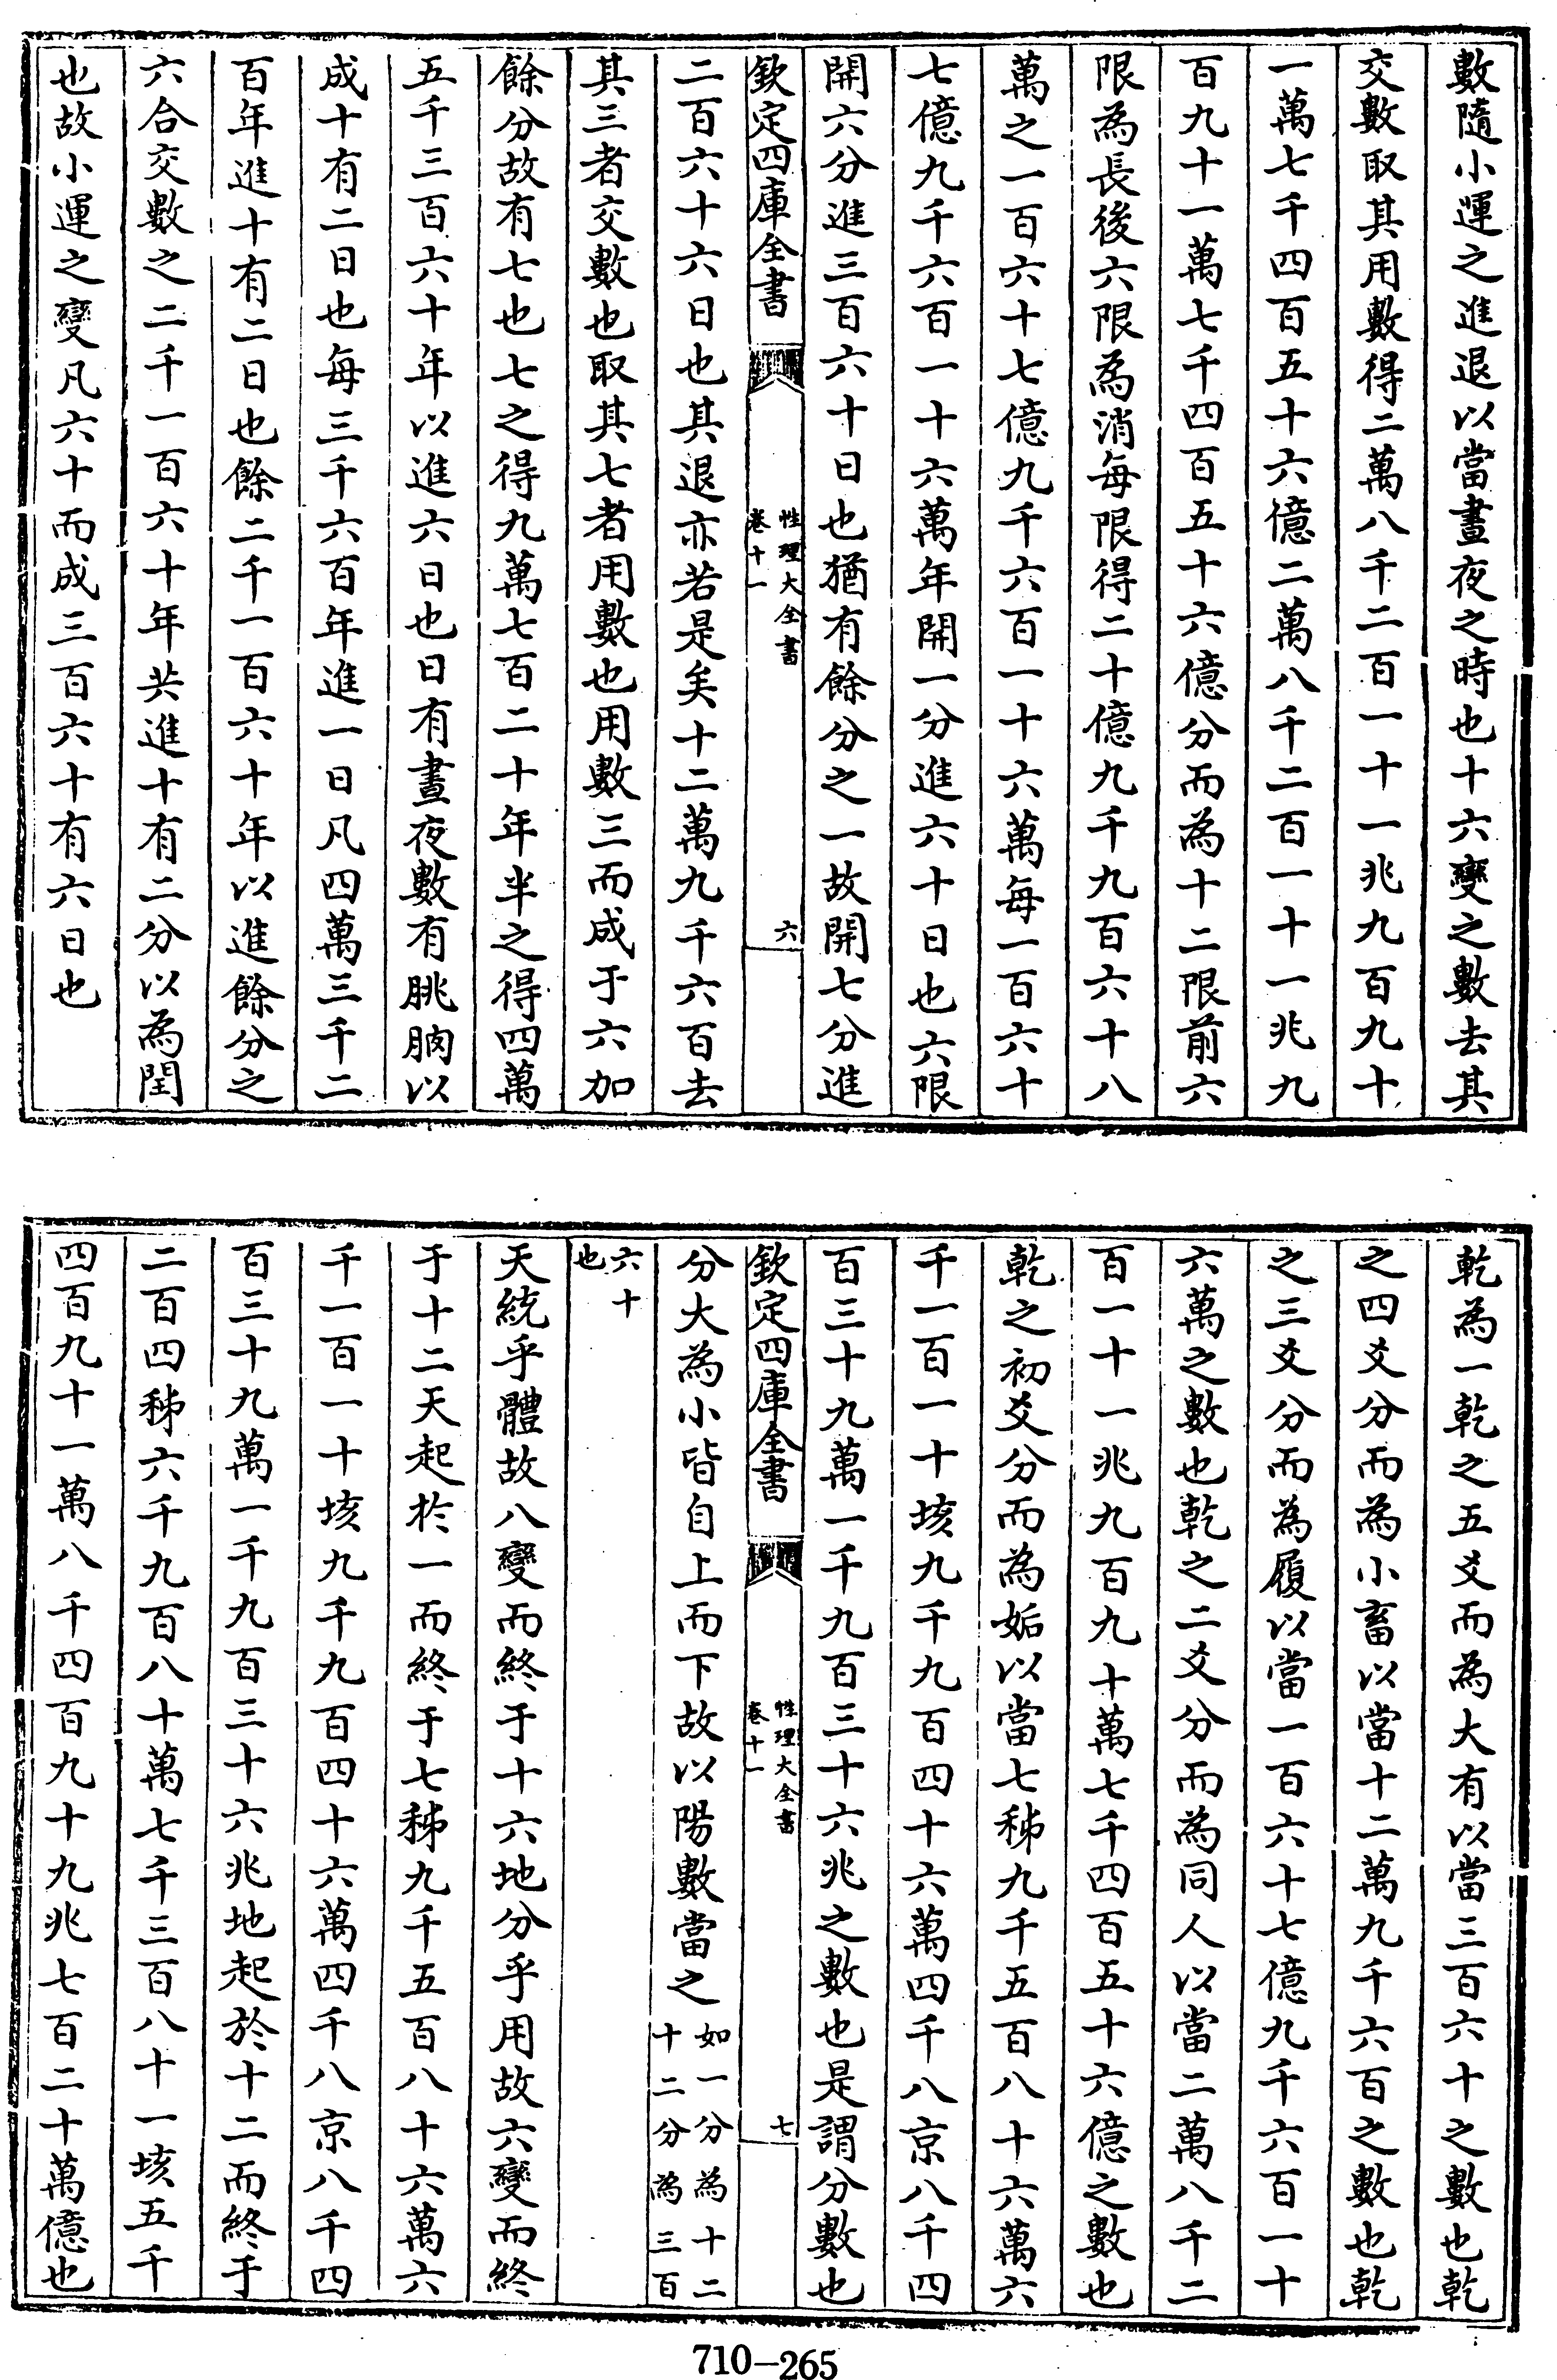 數隨小運之進退以當晝夜之時也十六變之數去其
交數取其用數得二萬八千二百一十一兆九百九十
一萬七千四百五十六億二萬八千二百一十一兆九
百九十一萬七千四百五十六億分而為十二限前六
限為長後六限為消每限得二十億九千九百六十八
萬之一百六十七億九千六百一十六萬每一百六十
七億九千六百一十六萬年開一分進六十日也六限
開六分進三百六十日也猶有餘分之一故開七分進
欽定四庫全書
性理大全書
卷十一
六
二百六十六日也其退亦若是矣十二萬九千六百去
其三者交數也取其七者用數也用數三而成于六加
餘分故有七也七之得九萬七百二十年半之得四萬
五千三百六十年以進六日也日有晝夜數有朓朒以
成十有二日也每三千六百年進一日凡四萬三千二
百年進十有二日也餘二千一百六十年以進餘分之
六合交數之二千一百六十年共進十有二分以為閏
也故小運之變凡六十而成三百六十有六日也
乾為一乾之五爻而為大有以當三百六十之數也乾
之四爻分而為小畜以當十二萬九千六百之數也乾
之三爻分而為履以當一百六十七億九千六百一十
六萬之數也乾之二爻分而為同人以當二萬八千二
百一十一兆九百九十萬七千四百五十六億之數也
乾之初爻分而為姤以當七秭九千五百八十六萬六
千一百一十垓九千九百四十六萬四千八京八千四
百三十九萬一千九百三十六兆之數也是謂分數也
欽定四庫全書
性理大全書
卷十一
七
分大為小皆自上而下故以陽數當之如一分為十二
十二分為三百
六十
也
天統乎體故八變而終于十六地分乎用故六變而終
于十二天起於一而終于七秭九千五百八十六萬六
千一百一十垓九千九百四十六萬四千八京八千四
百三十九萬一千九百三十六兆地起於十二而終于
二百四秭六千九百八十萬七千三百八十一垓五千
四百九十一萬八千四百九十九兆七百二十萬億也
710-265